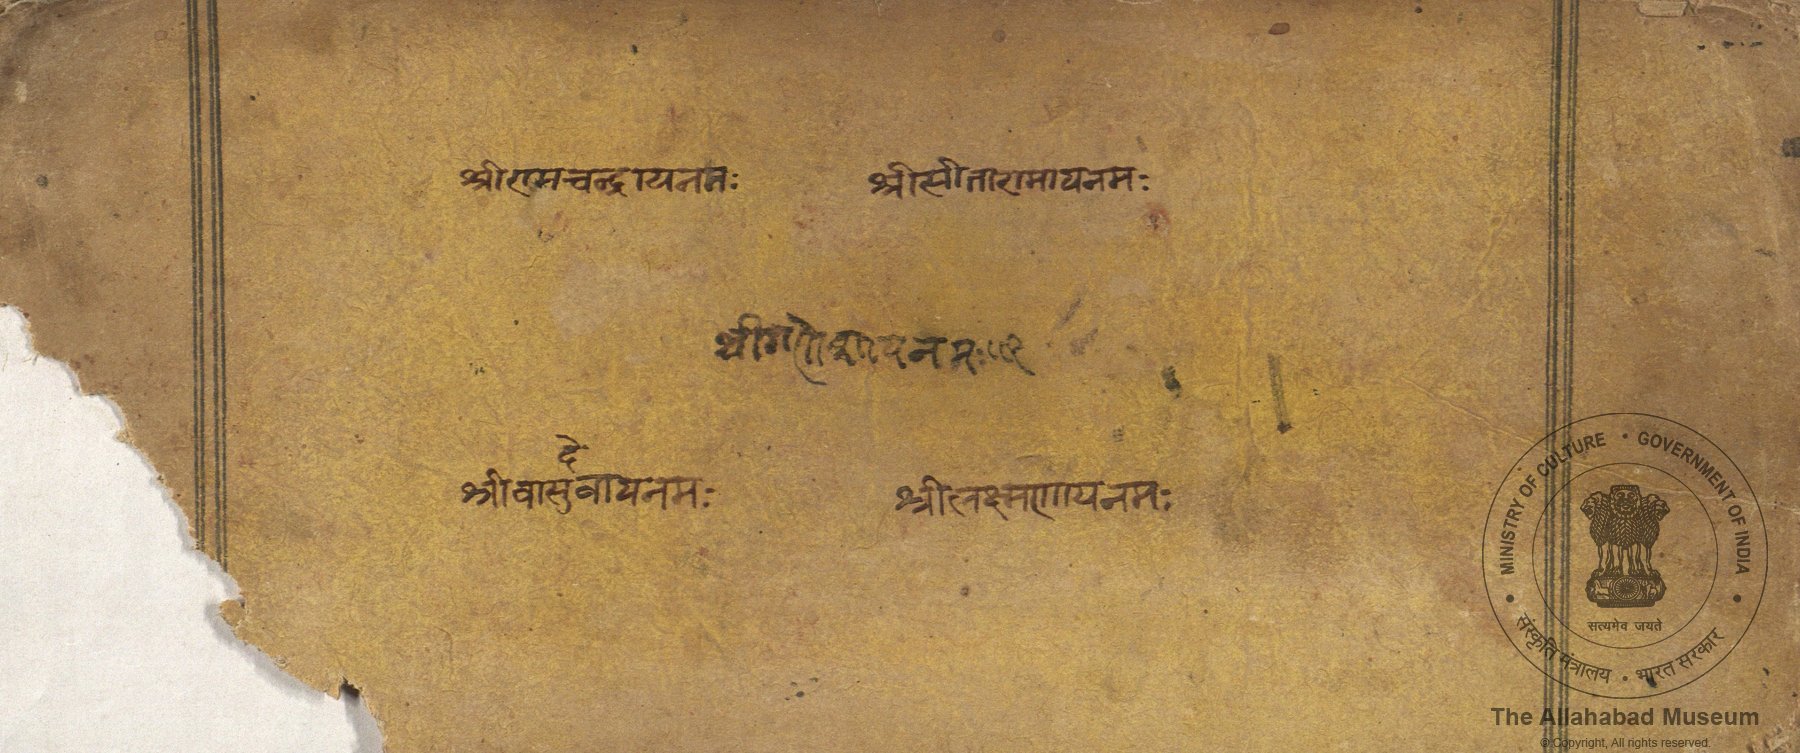 श्रीरामचन्द्रायनमः श्रीसीतारामायनमः
श्रीगणेशायनमः
दे
श्रीवासुवायनमः श्रीलक्ष्मणायनमः
MINISTRY OF CULTURE • GOVERNMENT OF INDIA
सत्यमेव जयते
संस्कृति मंत्रालय • भारत सरकार
The Allahabad Museum
© Copyright, All rights reserved.